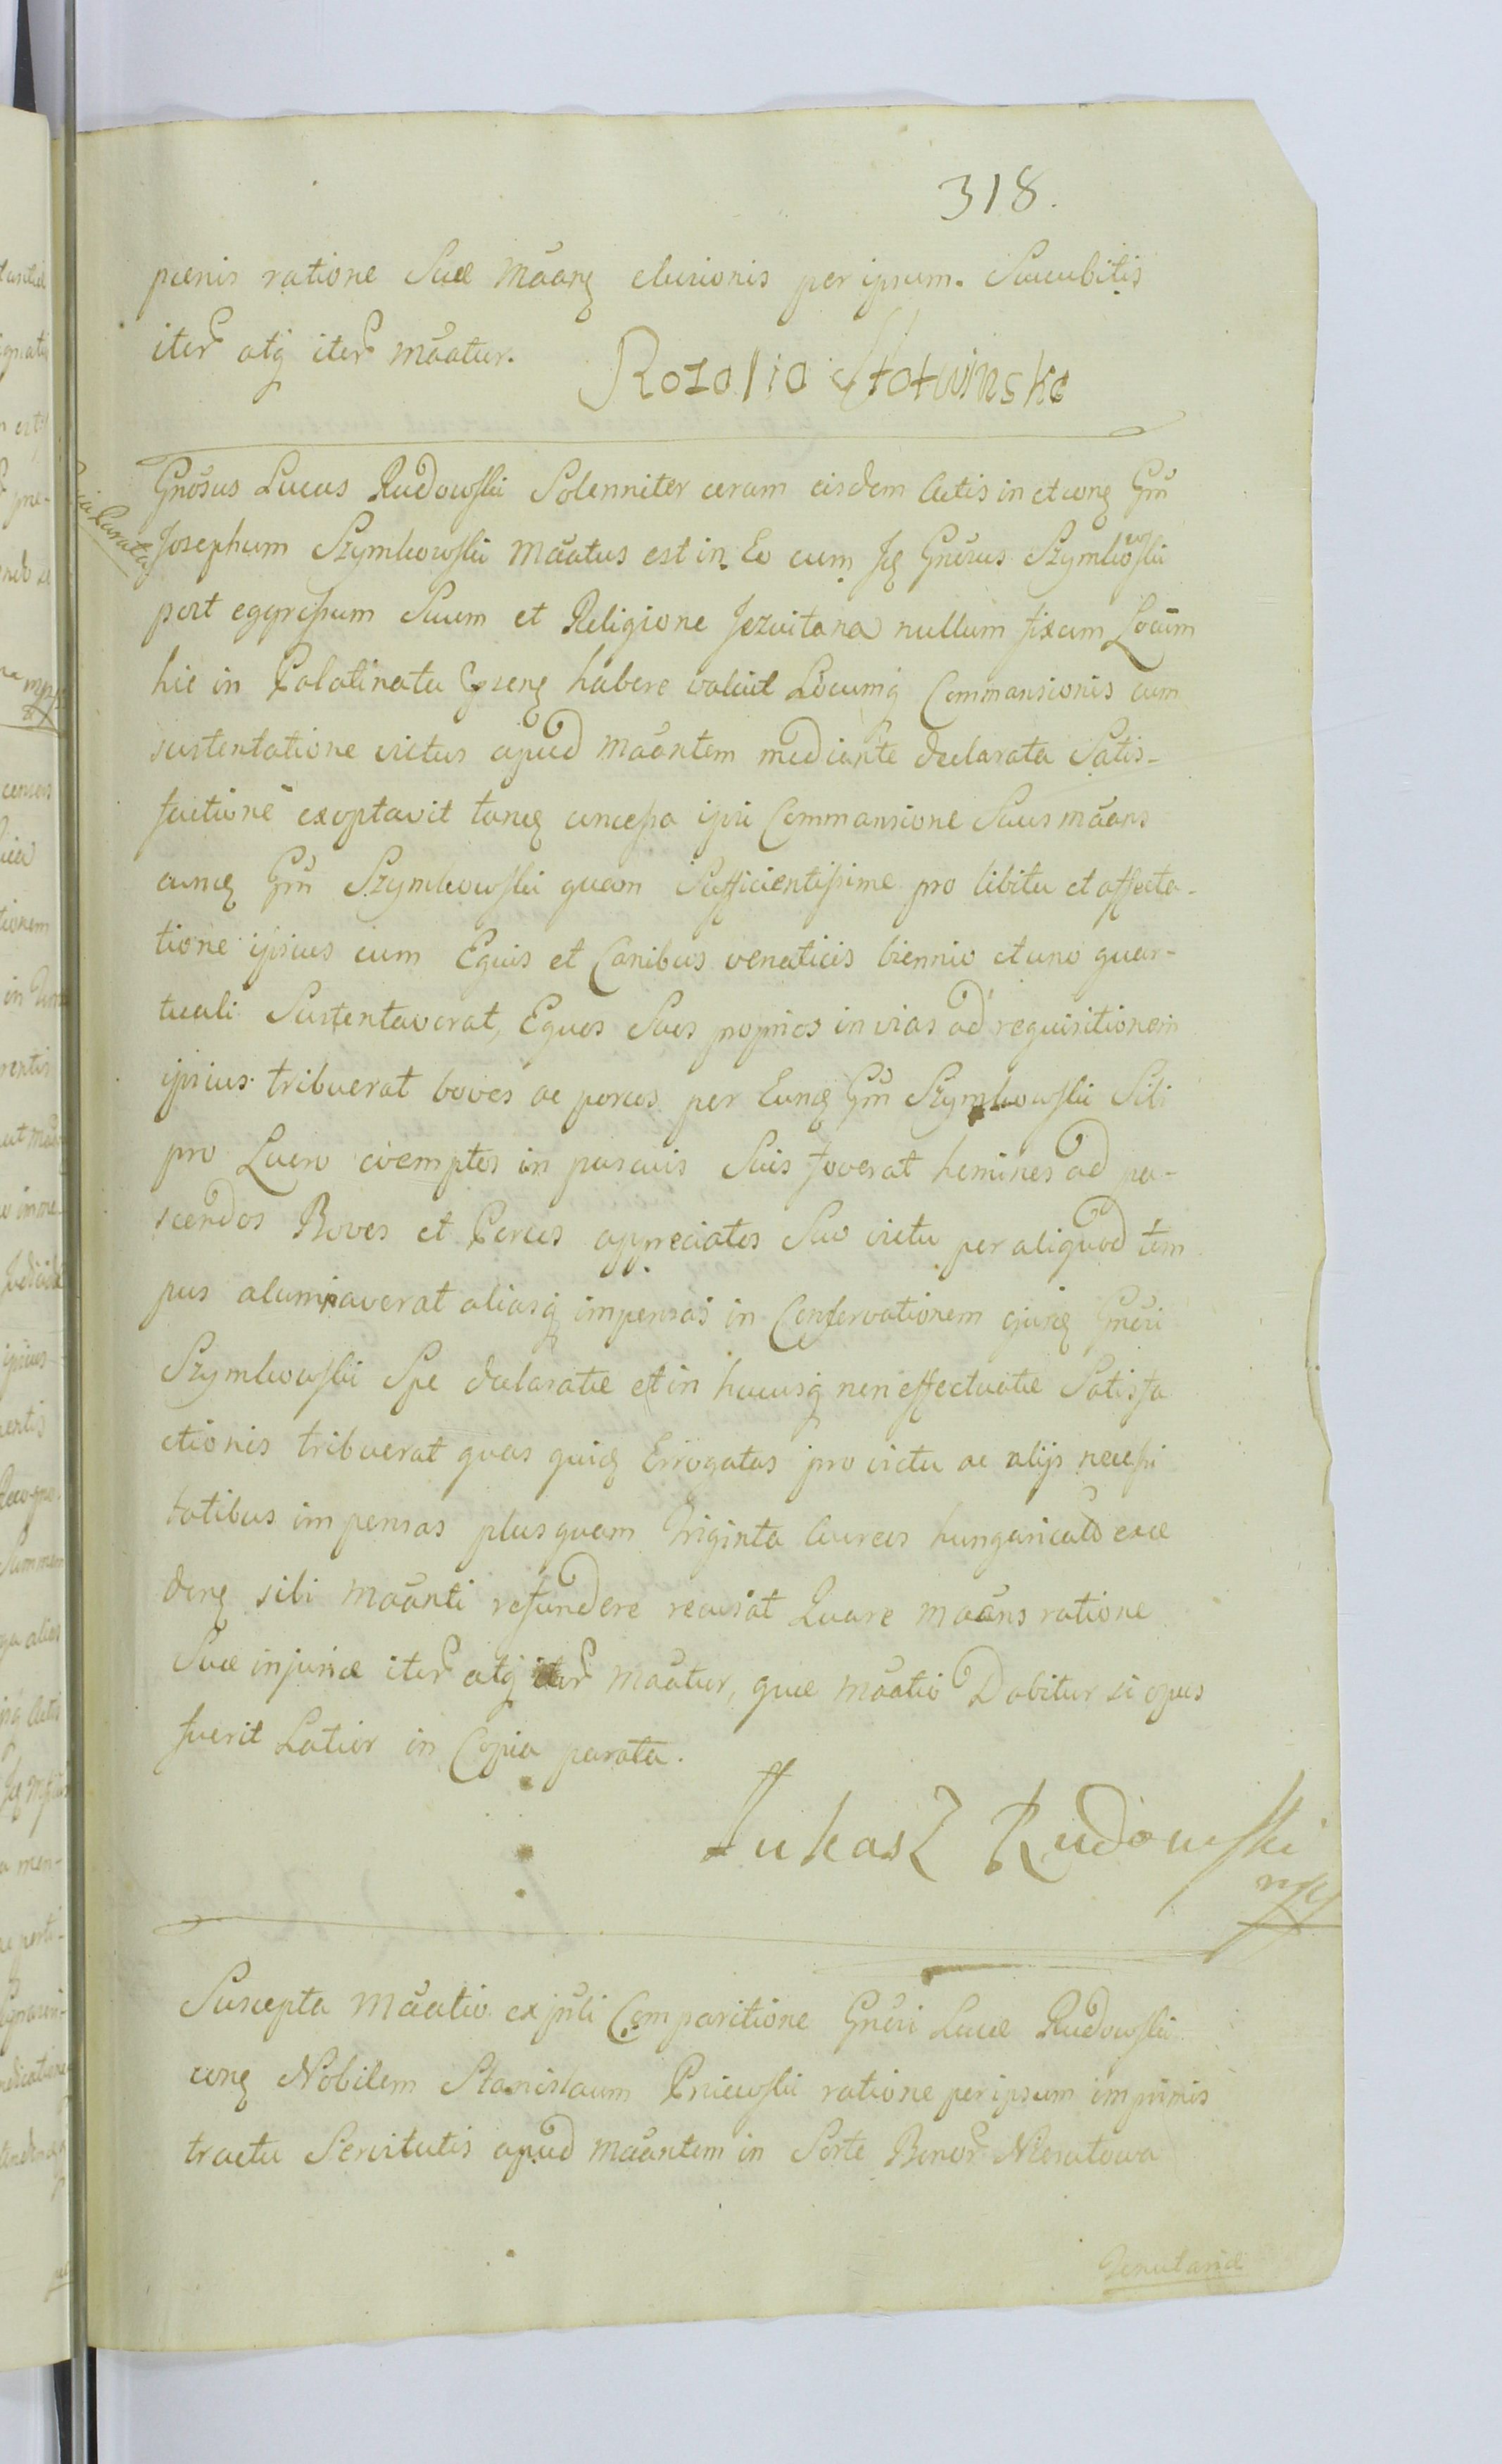 318.
pœnis ratione Suæ mããnq elusionis per ipsum. Succubitis
iter̃ atq iter̃ mãatur.
Rozolia Słotwinska
Gnosus Lucas Rudowski Solenniter coram eisdem Actis in et conq Gm̃
Copia Parata
Josephum Szymkowski mãatus est in Eo cum Jq Gnosus Szymkowski
post eggressum Suum et Religione Jezuitana nullum fixum Locum
hic in Palatinatu habere voluit Locumq Commansionis cum
sustentatione victus apud mãantem mediante declarata Satis-
factione exoptavit tancq concessa ipsi Commansione Suus mãans
eumq Gm̃ Szymkowski quam Sufficientissime pro libitu et affecta-
tione ipsius cum Equis et Canibus venaticis biennio et uno quar-
tuali Sustentaverat, Equos Suos proprios in vias ad requisitionem
ipsius tribuerat boves ac porcos per Eunq Gm̃ Szymkowski Sibi
pro Lucro coemptos in pascuis Suis foverat homines ad pa-
scendos Boves et Porcos appreciatos Suo victu per aliquod tem
pus alumnaverat aliasq impensas in Conservationem ejusq Gnosi
Szymkowski Spe declaratæ et in hucusq non effectuatæ Satisfa
ctionis tribuerat quas quiq Errogatas pro victu ac alijs necessi
tatibus impensas plusquam Triginta Aureos hungaricales exce
denq sibi mãanti refundere recusat Quare mãans ratione
Suæ injuriæ iter̃ atq iter̃ mãatur, quæ mãatio Dabitur si opus
fuerit Latior in Copia parata.
Łukasz Rudowski
mp
Suscepta mãatio ex jũli Comparitione Gnosi Lucæ Rudowski
conq Nobilem Stanislaum Pniewski ratione per ipsum imprimis
tractu Servitutis apud mãantem in Sorte Bonor̃ Nieratowa
Tenutariæ